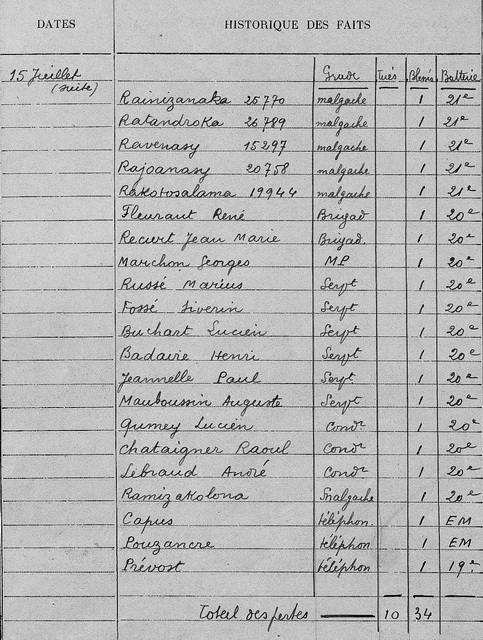 DATES HISTORIQUE DES FAITS
15 Juillet Grade Tués Blessés Batterie
(suite)
Rainizanaka 25770 malgache 1 21e
Ratandroka 26789 malgache 1 21e
Ravenasy 15297 malgache 1 21e
Rajoanasy 20758 malgache 1 21e
Rakotosalama 19944 malgache 1 21e
Fleurant René Brigad 1 20e
Recurt Jean Marie Brigad. 1 20e
Marchon Georges MP 1 20e
Russé Marius Servt 1 20e
Fossé Siverin Servt 1 20e
Buchart Lucien Servt 1 20e
Badavie Henri Servt 1 20e
Jeannelle Paul Servt 1 20e
Mauboussin Auguste Servt 1 20e
Qumey Lucien Condr 1 20e
Chataigner Raoul Condr 1 20e
Lebraud André Condr 1 20e
Ramizakolona malgache 1 20e
Capus téléphon. 1 EM
Pouzancre téléphon 1 EM
Prévost téléphon 1 19e
Total des pertes 10 34